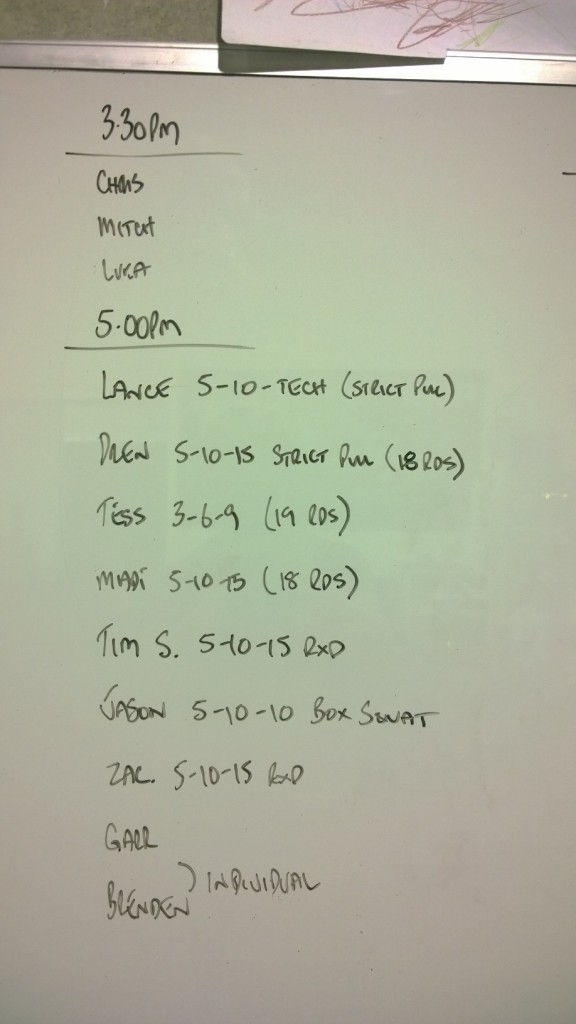 3.30PM
CHRIS
MITCH
LUKA
5.00PM
LANCE 5-10-TECH (STRICT PULL)
DREN 5-10-15 STRICT PULL (18 RDS)
TESS 3-6-9 (19 RDS)
MADI 5-10-15 (18 RDS)
TIM S. 5-10-15 RXD
JASON 5-10-10 BOX SQUAT
ZAC. 5-10-15 RXD
GARR
BRENDEN ) INDIVIDUAL